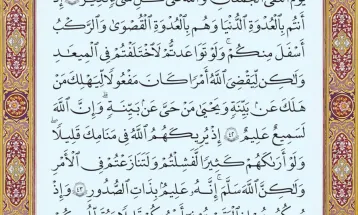 يَوْمَ ٱلْتَقَى ٱلْجَمْعَانِ وَٱللَّهُ عَلَىٰ كُلِّ شَىْءٍ قَدِيرٌ ٤١ إِذْ
أَنتُم بِٱلْعُدْوَةِ ٱلدُّنْيَا وَهُم بِٱلْعُدْوَةِ ٱلْقُصْوَىٰ وَٱلرَّكْبُ
أَسْفَلَ مِنكُمْ ۚ وَلَوْ تَوَاعَدتُّمْ لَٱخْتَلَفْتُمْ فِى ٱلْمِيعَٰدِ ۙ
وَلَٰكِن لِّيَقْضِىَ ٱللَّهُ أَمْرًا كَانَ مَفْعُولًا لِّيَهْلِكَ مَنْ
هَلَكَ عَنۢ بَيِّنَةٍ وَيَحْيَىٰ مَنْ حَىَّ عَنۢ بَيِّنَةٍ ۗ وَإِنَّ ٱللَّهَ
لَسَمِيعٌ عَلِيمٌ ٤٢ إِذْ يُرِيكَهُمُ ٱللَّهُ فِى مَنَامِكَ قَلِيلًا ۖ
وَلَوْ أَرَىٰكَهُمْ كَثِيرًا لَّفَشِلْتُمْ وَلَتَنَٰزَعْتُمْ فِى ٱلْأَمْرِ
وَلَٰكِنَّ ٱللَّهَ سَلَّمَ ۗ إِنَّهُۥ عَلِيمٌۢ بِذَاتِ ٱلصُّدُورِ ٤٣ وَإِذْ